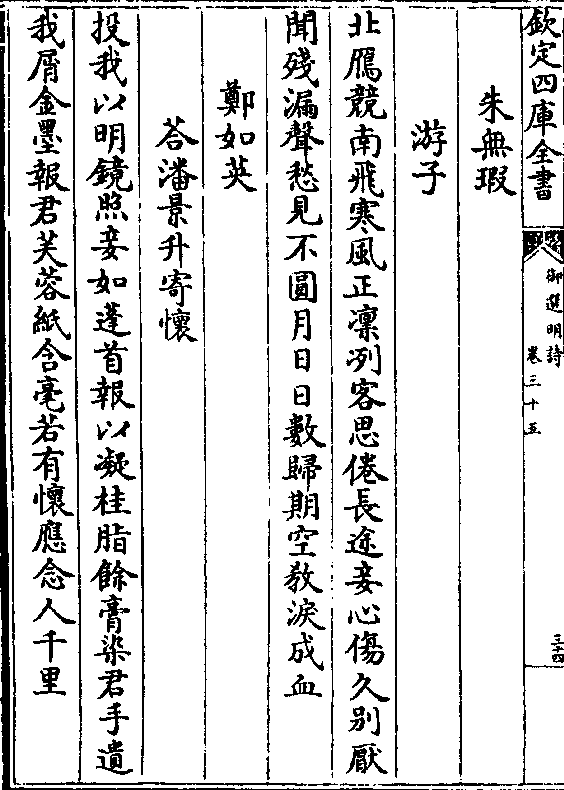 欽定四庫全書
御選明詩
卷三十五
三十四
朱無瑕
游子
北鴈競南飛寒風正凛冽客思倦長途妾心傷久別厭
聞殘漏聲愁見不圓月日日數歸期空教淚成血
鄭如英
荅潘景升寄懷
投我以明鏡照妾如蓬首報以凝桂脂餘膏染君手遺
我屑金墨報君芙蓉紙含毫若有懷應念人千里